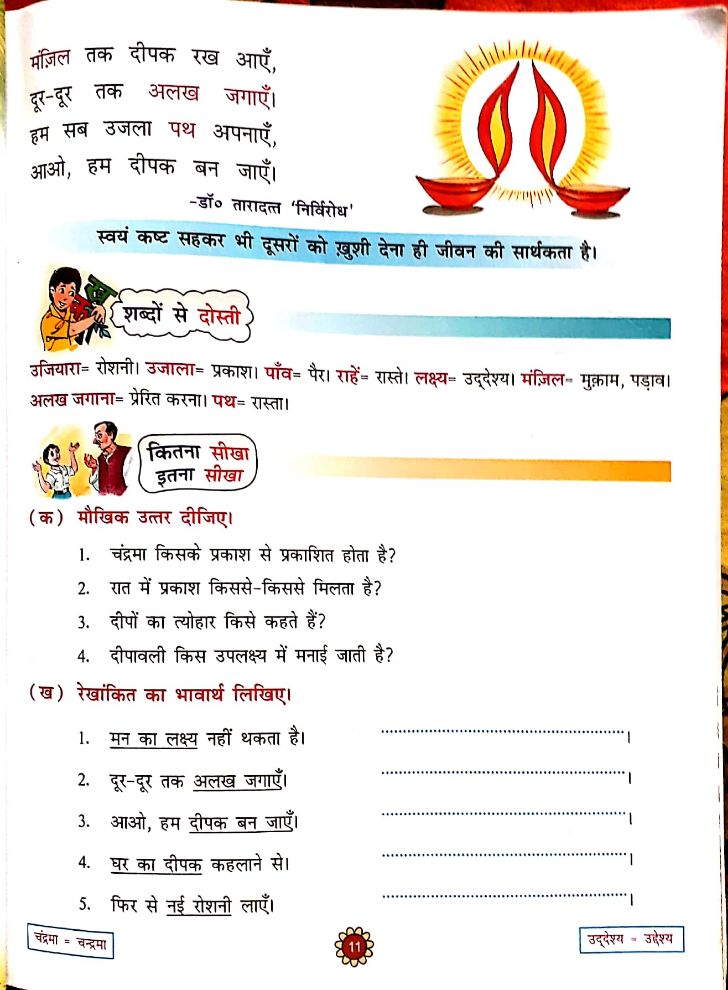 मंज़िल तक दीपक रख आएँ,
दूर-दूर तक अलख जगाएँ।
हम सब उजला पथ अपनाएँ,
आओ, हम दीपक बन जाएँ।
-डॉ० तारादत्त 'निर्विरोध'
स्वयं कष्ट सहकर भी दूसरों को ख़ुशी देना ही जीवन की सार्थकता है।
शब्दों से दोस्ती
उजियारा= रोशनी। उजाला= प्रकाश। पाँव= पैर। राहें= रास्ते। लक्ष्य= उद्देश्य। मंज़िल= मुक़ाम, पड़ाव।
अलख जगाना= प्रेरित करना। पथ= रास्ता।
कितना सीखा
इतना सीखा
(क) मौखिक उत्तर दीजिए।
1. चंद्रमा किसके प्रकाश से प्रकाशित होता है?
2. रात में प्रकाश किससे-किससे मिलता है?
3. दीपों का त्योहार किसे कहते हैं?
4. दीपावली किस उपलक्ष्य में मनाई जाती है?
(ख) रेखांकित का भावार्थ लिखिए।
1. मन का लक्ष्य नहीं थकता है। ..............................।
2. दूर-दूर तक अलख जगाएँ। ..............................।
3. आओ, हम दीपक बन जाएँ। ..............................।
4. घर का दीपक कहलाने से। ..............................।
5. फिर से नई रोशनी लाएँ। ..............................।
चंद्रमा = चन्द्रमा
11
उद्‌देश्य = उद्देश्य